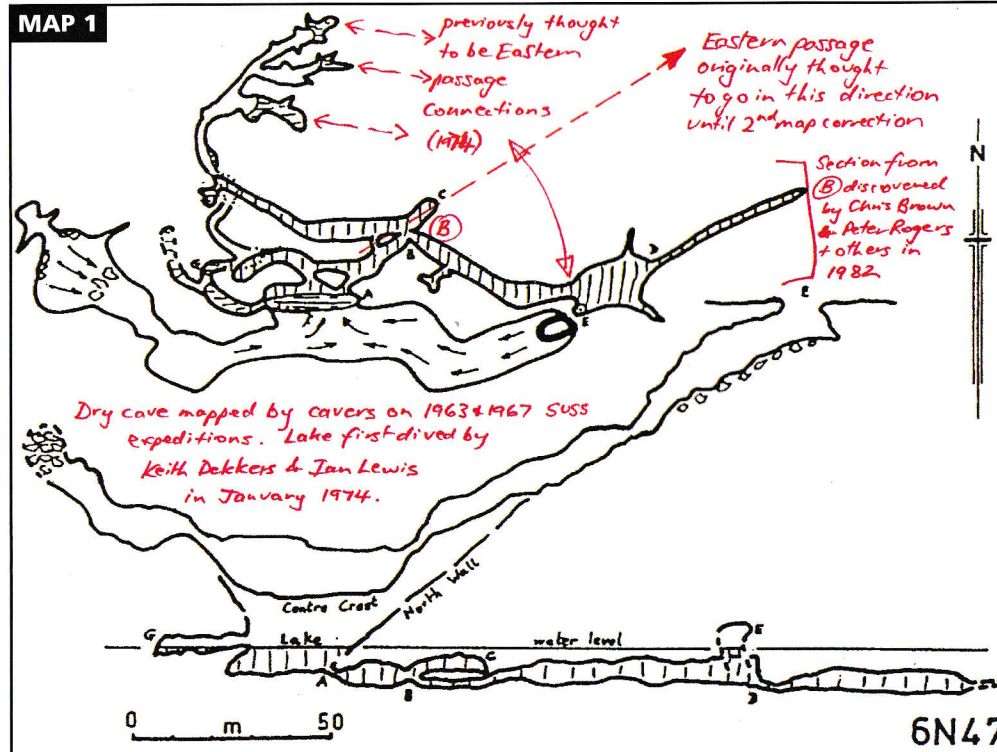 MAP 1
previously thought
to be Eastern
passage
Connections
(1974)
Eastern passage
originally thought
to go in this direction
until 2nd map correction
N
Section from
B discovered
by Chris Brown
& Peter Rogers
+ others in
1982
C
B
B
D
G
A
F
E
E
Dry cave mapped by cavers on 1963 & 1967 SUSS
expeditions. Lake first dived by
Keith Dekkers & Ian Lewis
in January 1974.
Centre Crest
North Wall
G
Lake
water level
E
A
B
C
D
0 m 50
6N47